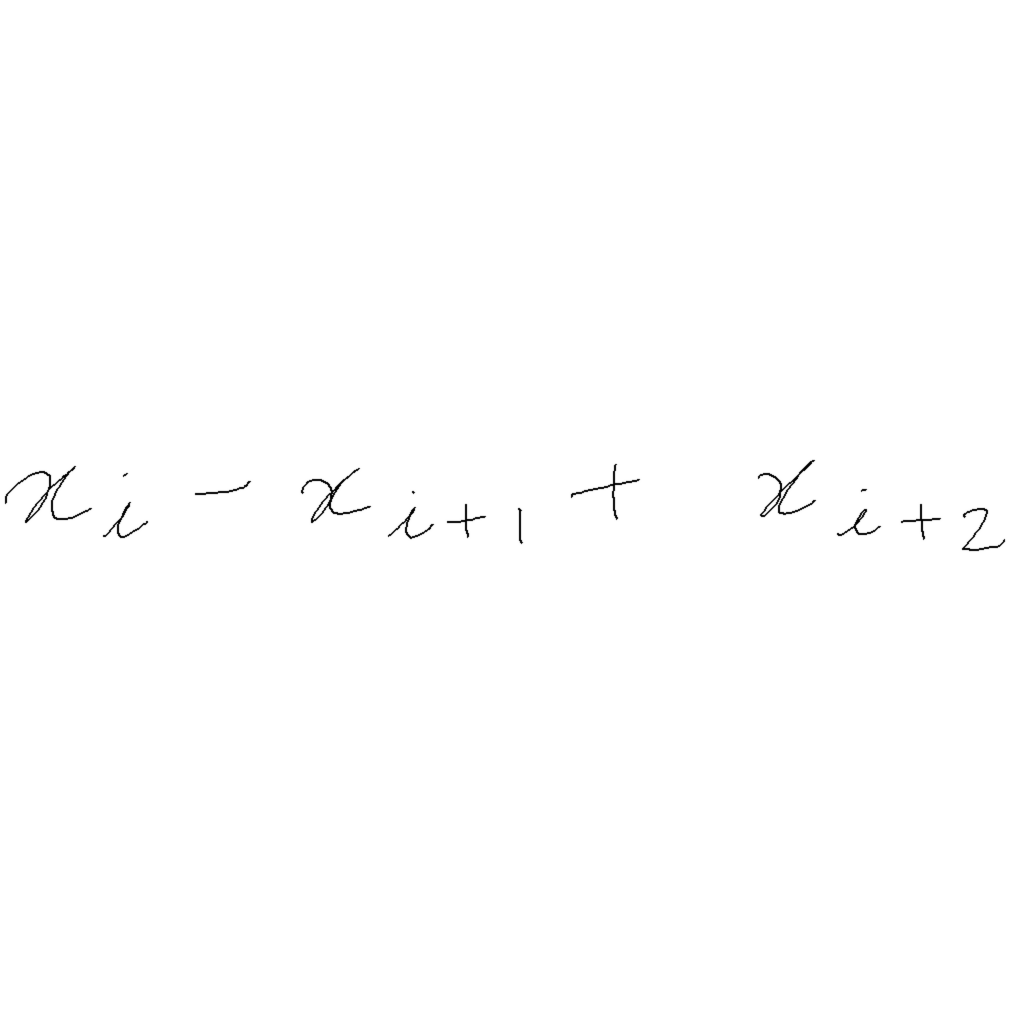 $x_i - x_{i+1} + x_{i+2}$